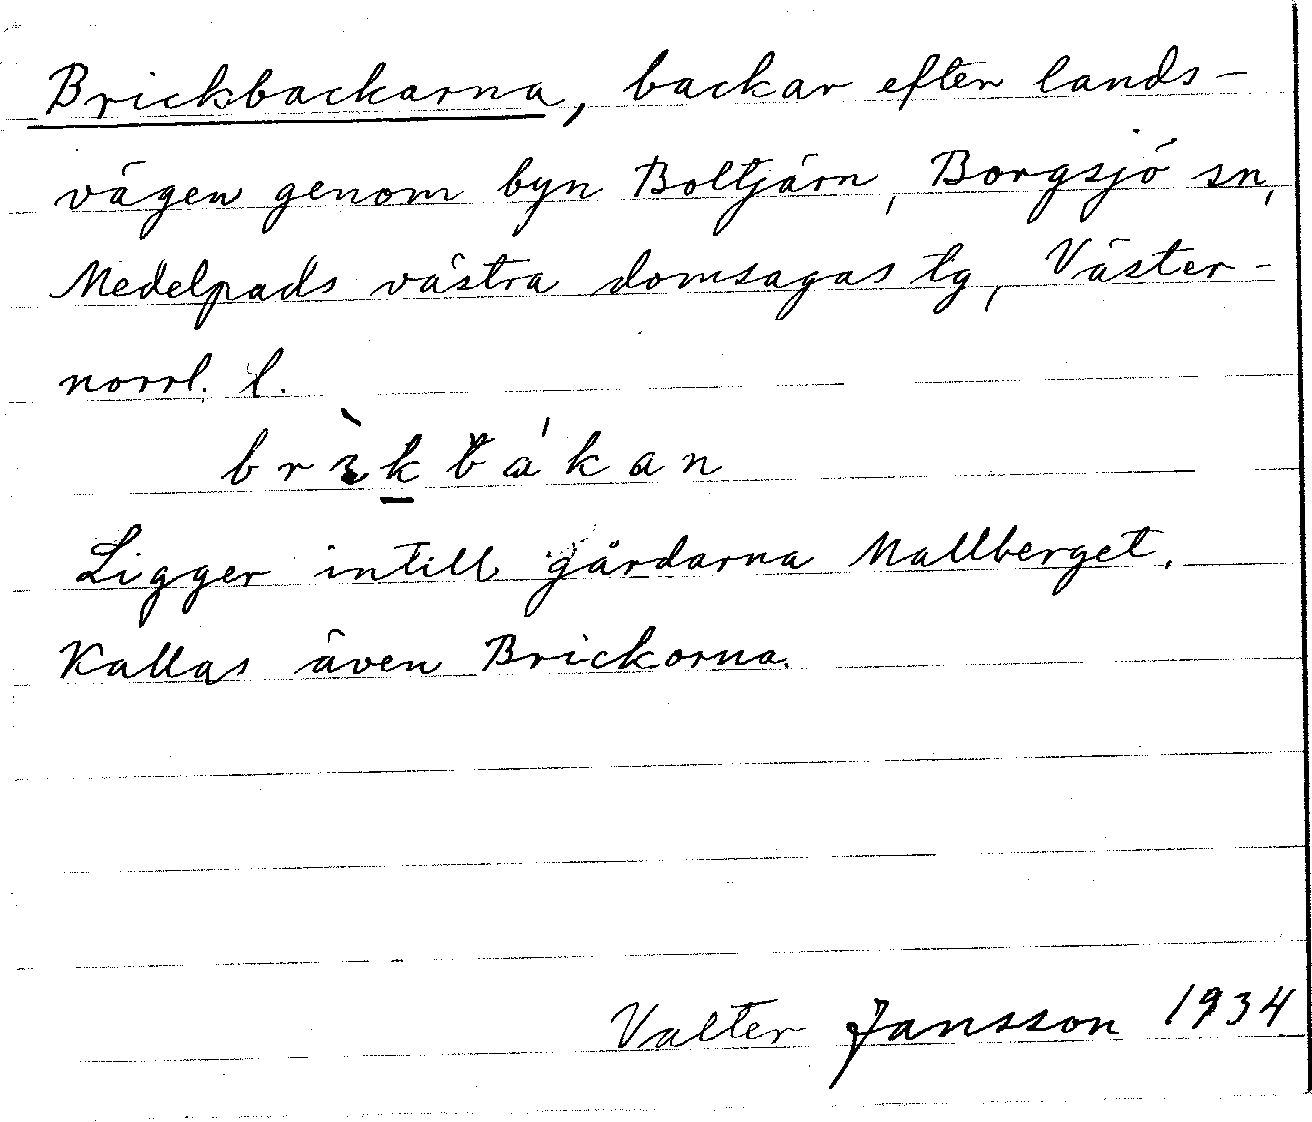 Brickbackarna, backar efter lands-
vägen genom byn Boltjärn, Borgsjö sn,
Medelpads västra domsagas tg, Väster-
norrl. l.
brìk̲bákan
Ligger intill gårdarna Mallberget.
Kallas även Brickorna.
Valter Jansson 1934